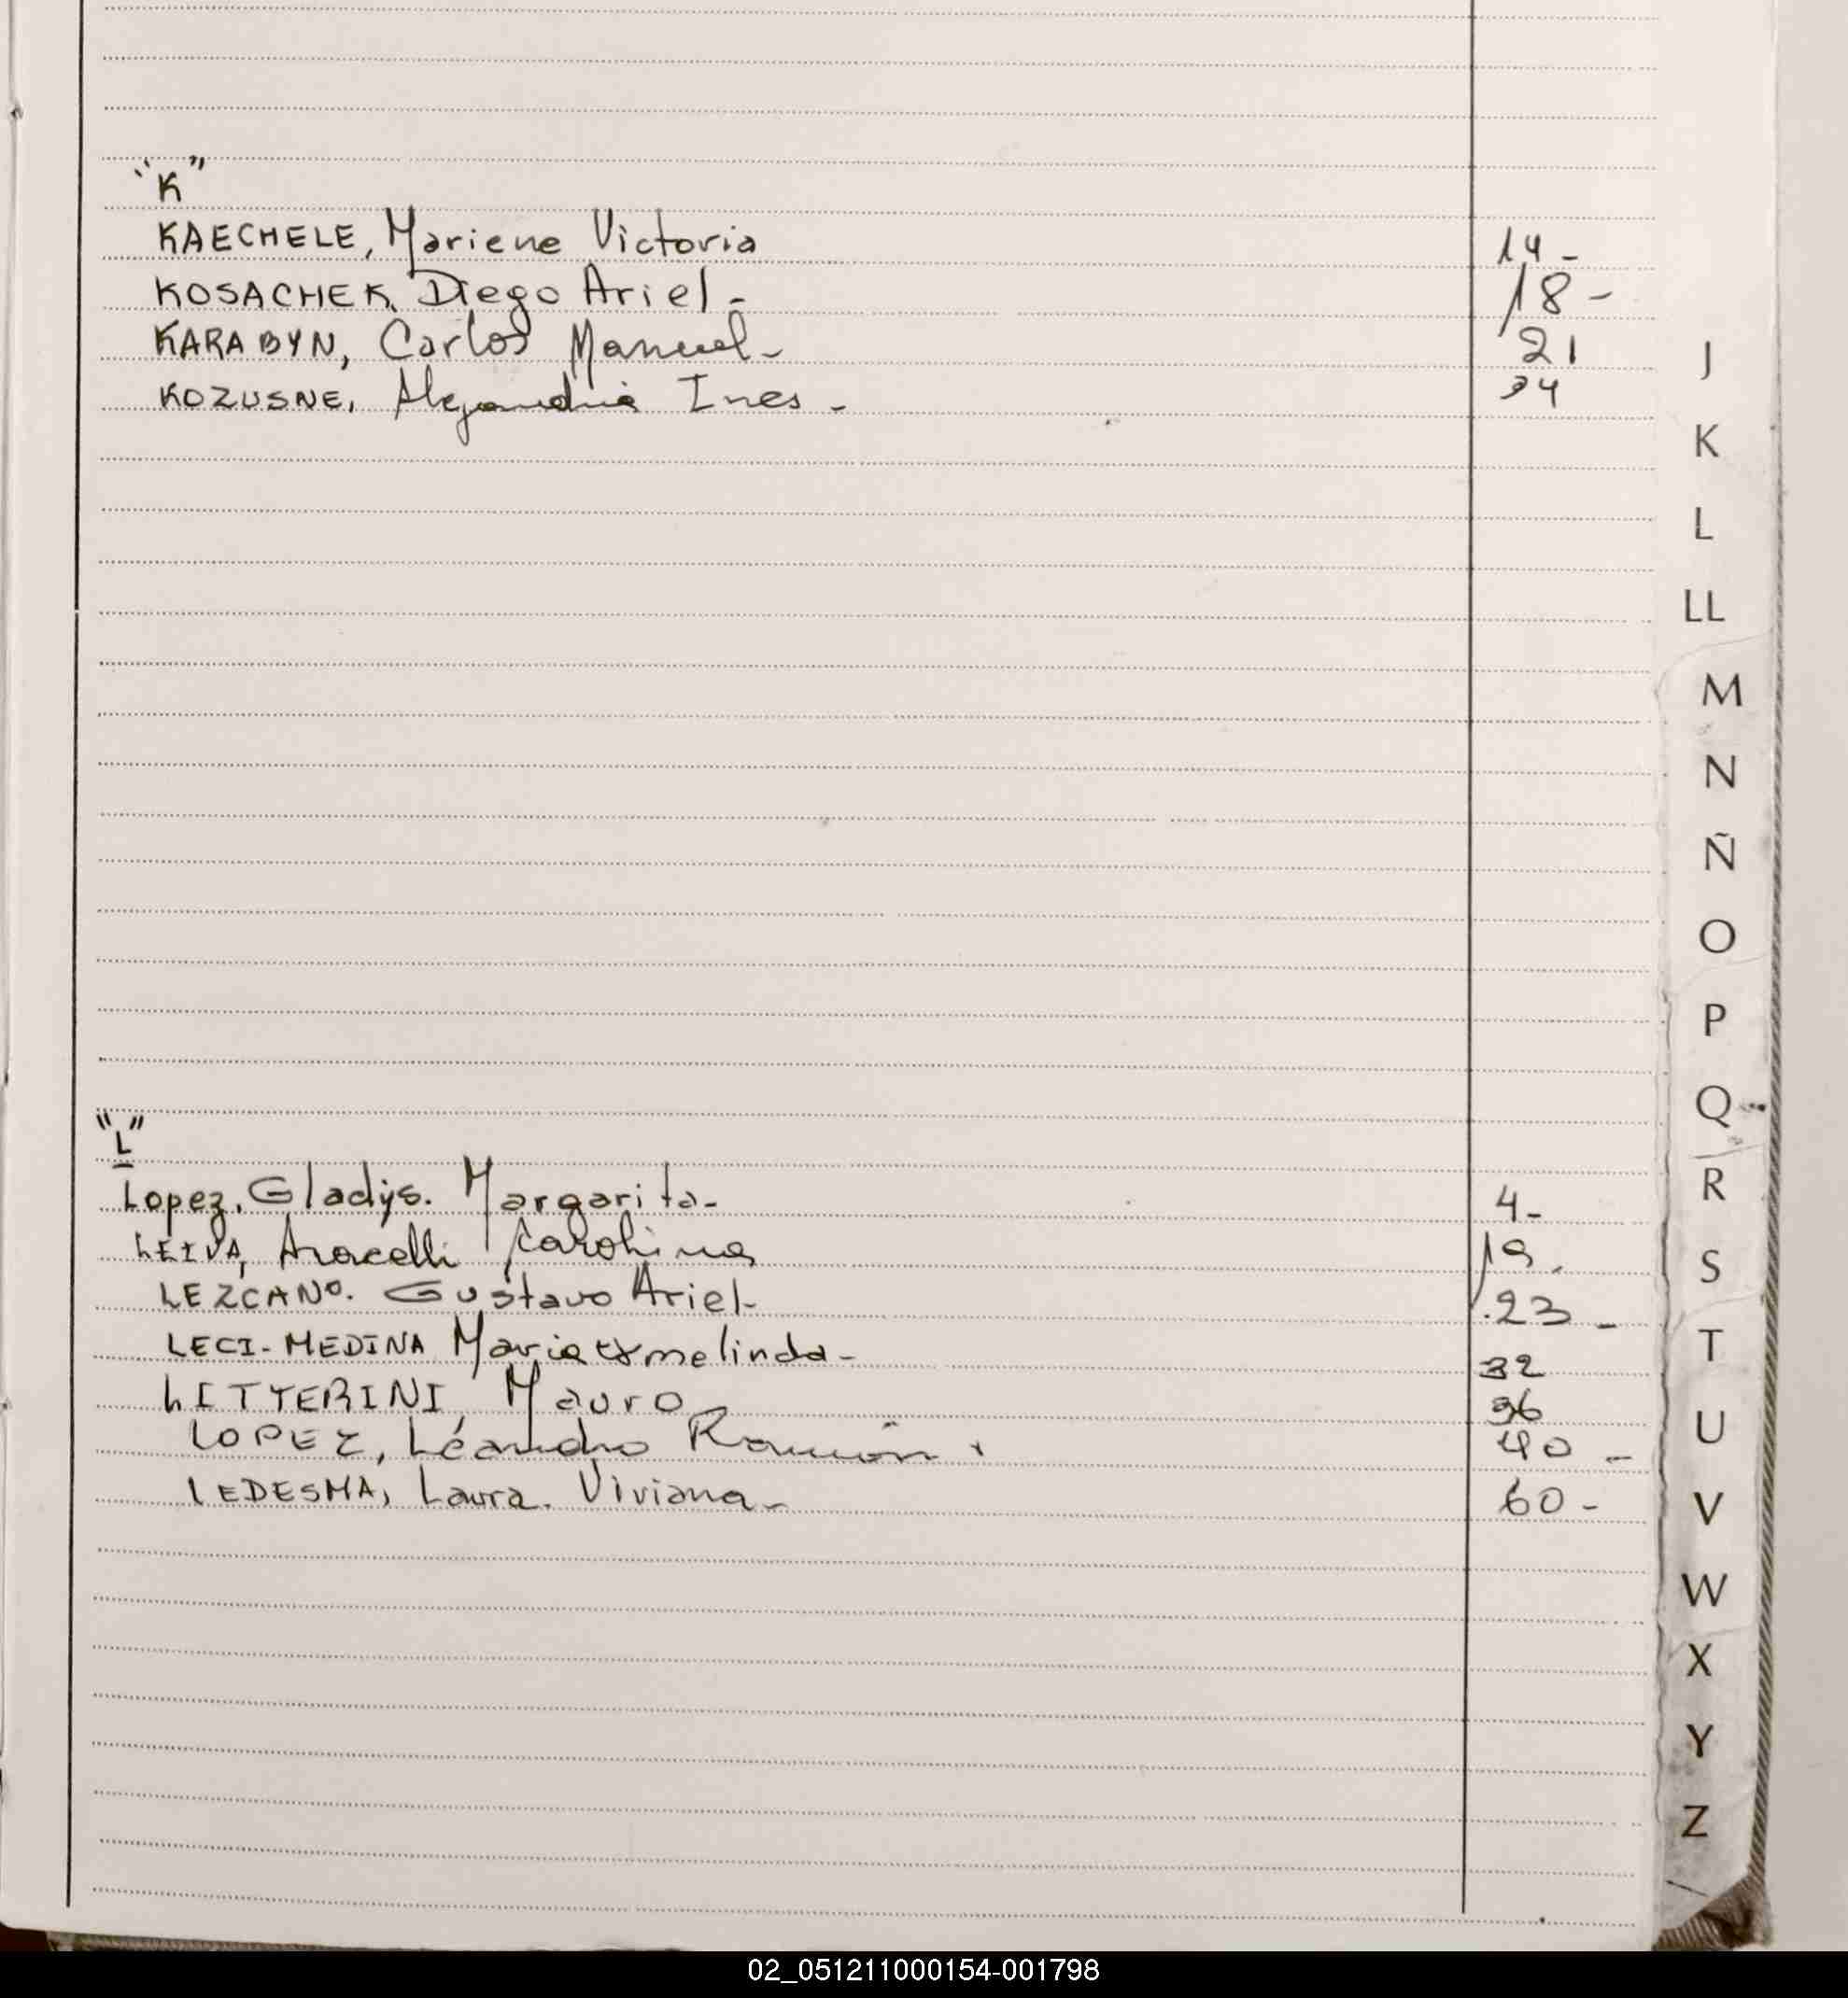 "K"
KAECHELE, Mariene Victoria 14-
KOSACHEK, Diego Ariel- 18-
KARABYN, Carlos Manuel- 21
KOZUSNE, Alejandria Ines- 34
"L"
Lopez, Gladys. Margarita- 4-
LEIVA, Aracelli Carolina 19.
LEZCANO. Gustavo Ariel- 23-
LECI-MEDINA Maria Ermelinda- 32
LITTERINI, Mauro 36
LOPEZ, Leandro Ramón. 40-
LEDESMA, Laura. Viviana- 60-
J
K
L
LL
M
N
Ñ
O
P
Q
R
S
T
U
V
W
X
Y
Z
02_051211000154-001798